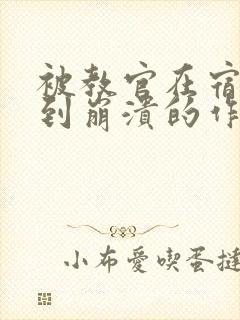 被教官在宿
到崩潰的作
小布愛喫蛋撻